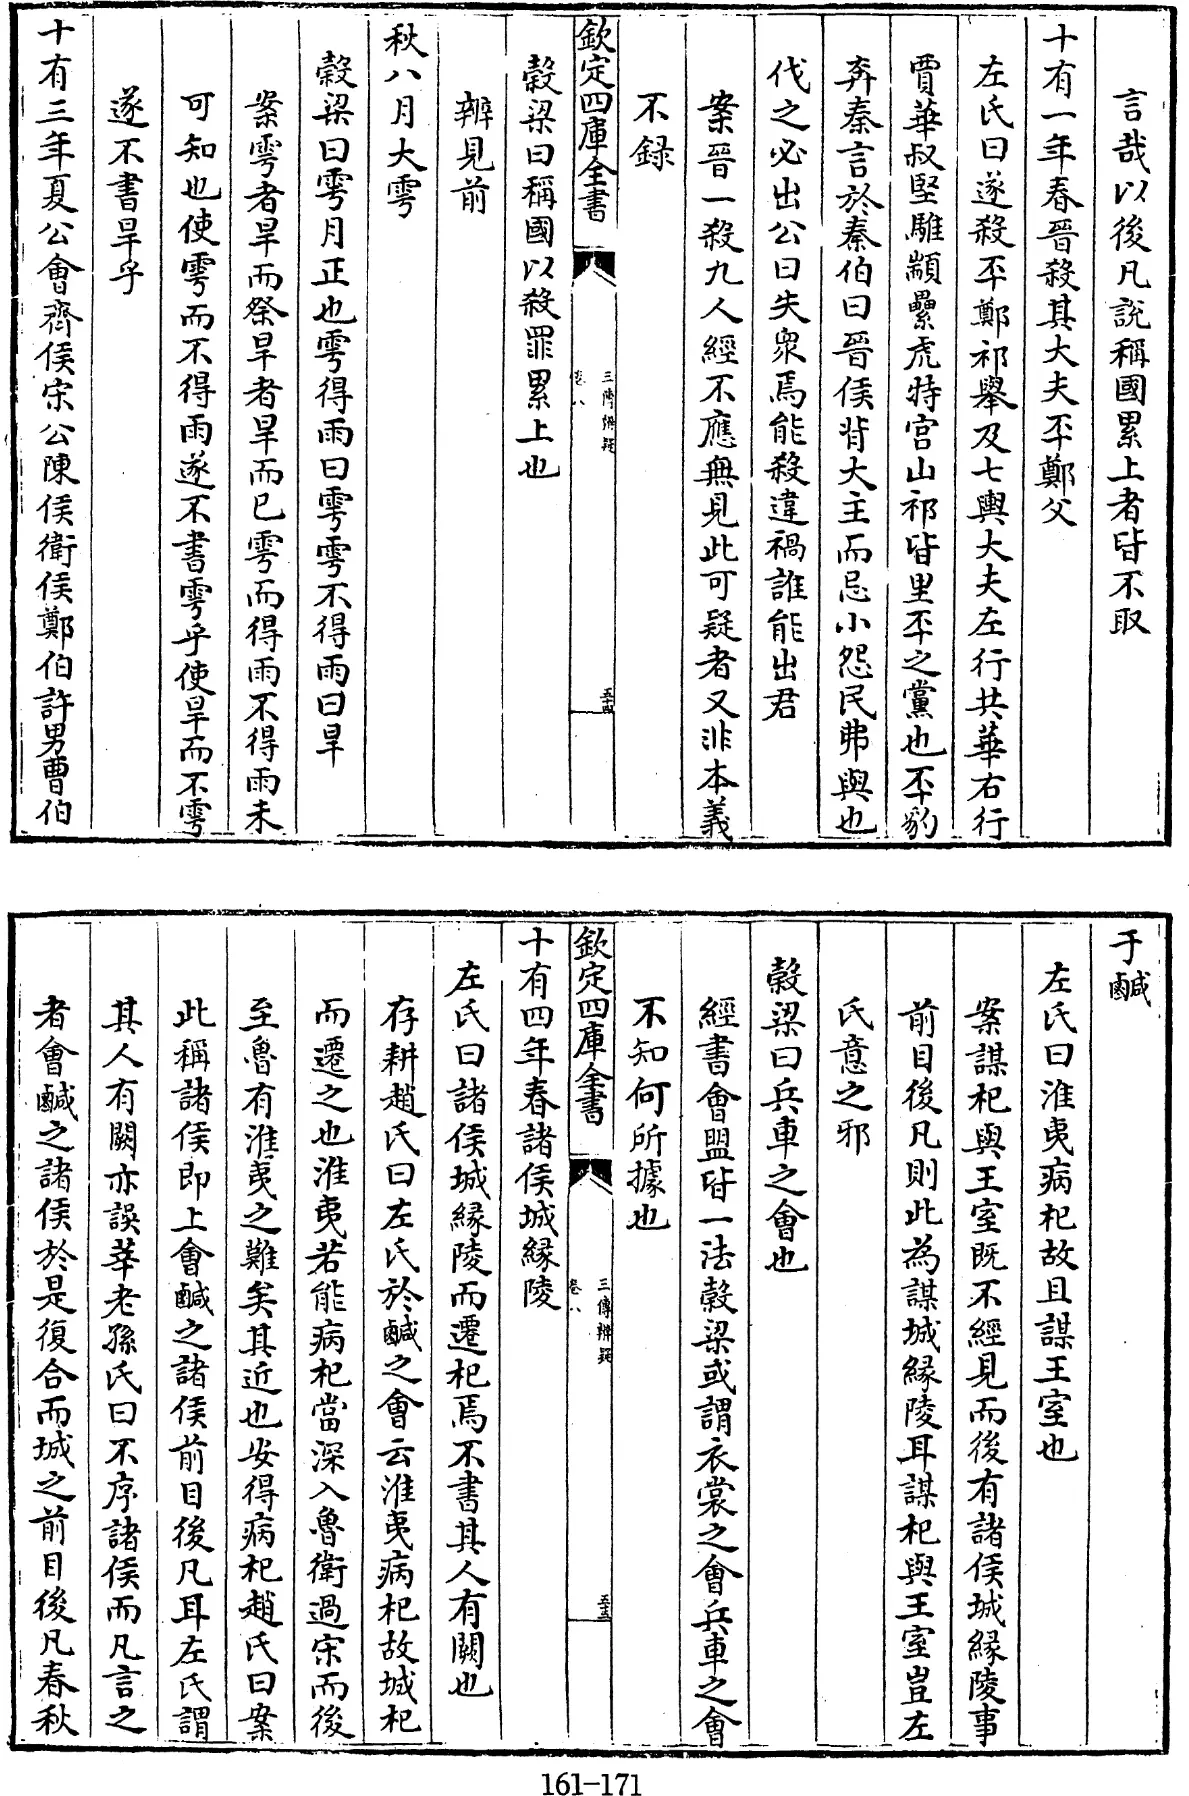 言哉以後凡説稱國累上者皆不取
十有一年春晉殺其大夫㔻鄭父
左氏曰遂殺㔻鄭祁舉及七輿大夫左行共華右行
賈華叔堅騅歂纍虎特宫山祁皆里㔻之黨也㔻豹
奔秦言於秦伯曰晉侯背大主而忌小怨民弗與也
代之必出公曰失衆焉能殺違禍誰能出君
案晉一殺九人經不應無見此可疑者又非本義
不録
欽定四庫全書
三傳辨疑
卷八
五十四
榖梁曰稱國以殺罪累上也
辨見前
秋八月大雩
榖梁曰雩月正也雩得雨曰雩雩不得雨曰旱
案雩者旱而祭旱者旱而已雩而得雨不得雨未
可知也使雩而不得雨遂不書雩乎使旱而不雩
遂不書旱乎
十有三年夏公會齊侯宋公陳侯衛侯鄭伯許男曹伯
于鹹
左氏曰淮夷病杞故且謀王室也
案謀杞與王室既不經見而後有諸侯城縁陵事
前目後凡則此為謀城縁陵耳謀杞與王室豈左
氏意之邪
榖梁曰兵車之會也
經書會盟皆一法榖梁或謂衣裳之會兵車之會
不知何所據也
欽定四庫全書
三傳辨疑
卷八
五十五
十有四年春諸侯城縁陵
左氏曰諸侯城縁陵而遷杞焉不書其人有闕也
存耕趙氏曰左氏於鹹之會云淮夷病杞故城杞
而遷之也淮夷若能病杞當深入魯衛過宋而後
至魯有淮夷之難矣其近也安得病杞趙氏曰案
此稱諸侯即上會鹹之諸侯前目後凡耳左氏謂
其人有闕亦誤莘老孫氏曰不序諸侯而凡言之
者會鹹之諸侯於是復合而城之前目後凡春秋
161-171